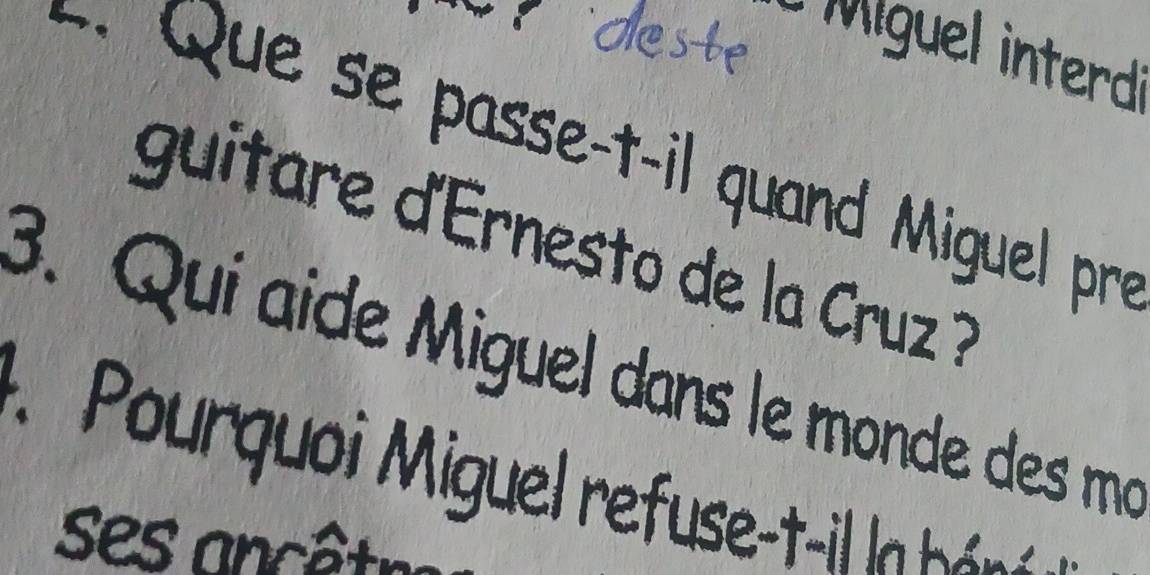 Miguel interdi
deste
2. Que se passe-t-il quand Miguel pre
guitare d'Ernesto de la Cruz ?
3. Qui aide Miguel dans le monde des mo
4. Pourquoi Miguel refuse-t-il la
ses